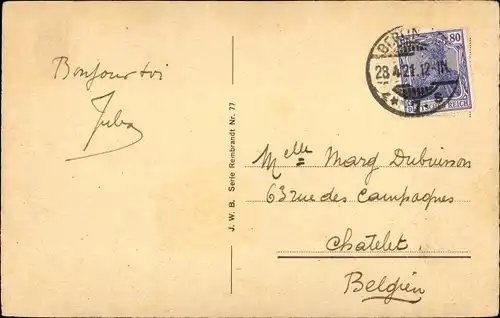 Bonjour toi
Jules
J. W. B. Serie Rembrandt Nr. 77
BERLIN
28.4.21.12-1N.
80
DEUTSCHES REICH
Melle Marg Dubuisson
63 rue des Campagnes
Chatelet.
Belgien